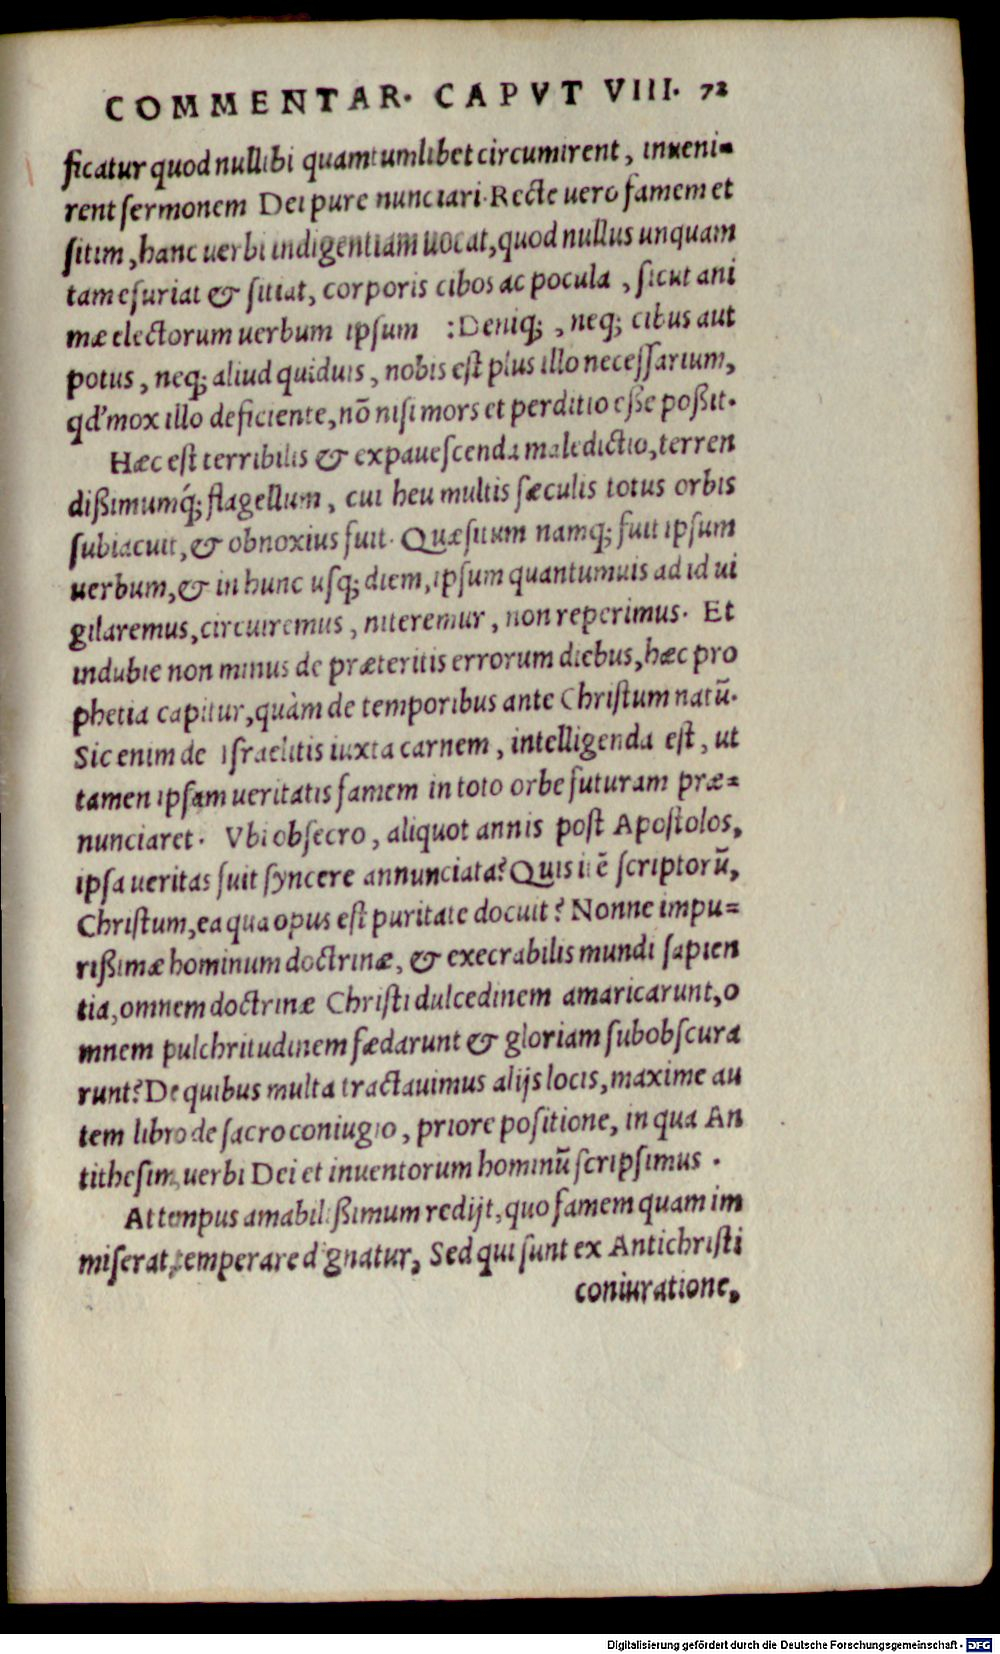 COMMENTAR. CAPVT VIII. 72
ficatur quod nullibi quamtumlibet circumirent, inueni-
rent sermonem Dei pure nunciari. Recte uero famem et
sitim, hanc uerbi indigentiam uocat, quod nullus unquam
tam esuriat & sitiat, corporis cibos ac pocula, sicut ani
mæ electorum uerbum ipsum : Deniq;, neq; cibus aut
potus, neq; aliud quiduis, nobis est plus illo necessarium,
qd' mox illo deficiente, nõ nisi mors et perditio eße poßit.
Hæc est terribilis & expauescenda maledictio, terren
dißimumq́; flagellum, cui heu multis sæculis totus orbis
subiacuit, & obnoxius fuit. Quæsitum namq; fuit ipsum
uerbum, & in hunc usq; diem, ipsum quantumuis ad id ui
gilaremus, circuiremus, niteremur, non reperimus. Et
indubie non minus de præteritis errorum diebus, hæc pro
phetia capitur, quàm de temporibus ante Christum natũ.
Sic enim de Israelitis iuxta carnem, intelligenda est, ut
tamen ipsam ueritatis famem in toto orbe futuram præ=
nunciaret. Vbi obsecro, aliquot annis post Apostolos,
ipsa ueritas fuit syncere annunciata? Quis itẽ scriptorũ,
Christum, ea qua opus est puritate docuit? Nonne impu=
rißimæ hominum doctrinæ, & execrabilis mundi sapien
tia, omnem doctrinæ Christi dulcedinem amaricarunt, o
mnem pulchritudinem fædarunt & gloriam subobscura
runt? De quibus multa tractauimus alijs locis, maxime au
tem libro de sacro coniugio, priore positione, in qua An
tithesim, uerbi Dei et inuentorum hominũ scripsimus.
At tempus amabilißimum redijt, quo famem quam im
miserat, temperare dignatur, Sed qui sunt ex Antichristi
coniuratione,
Digitalisierung gefördert durch die Deutsche Forschungsgemeinschaft - DFG